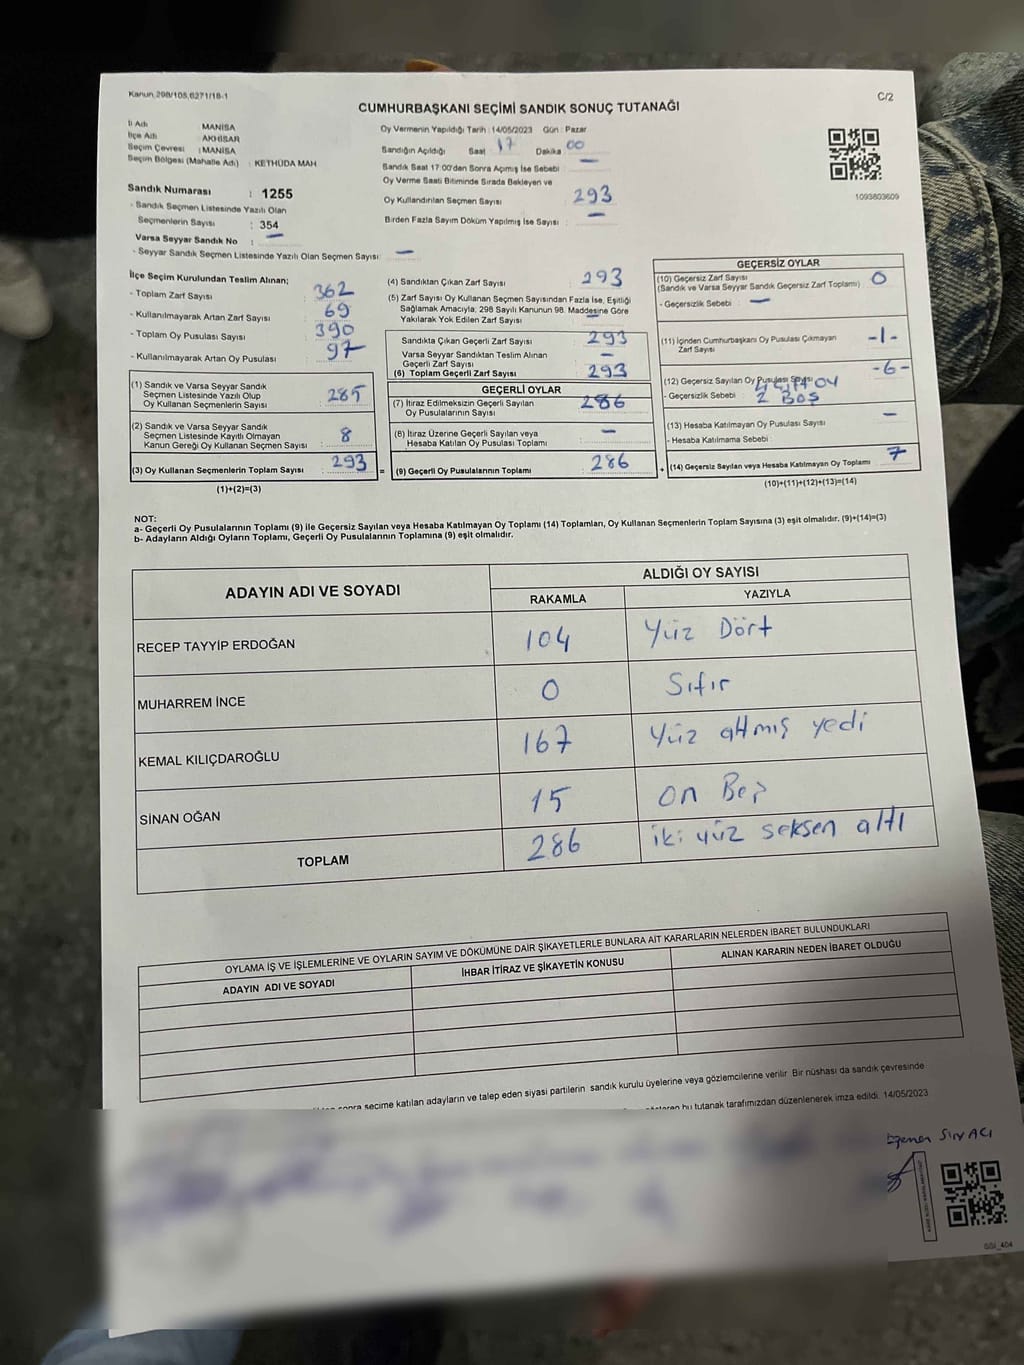 Kanun 298/105,6271/18-1
C/2
CUMHURBAŞKANI SEÇİMİ SANDIK SONUÇ TUTANAĞI
İl Adı : MANİSA
İlçe Adı : AKHİSAR
Seçim Çevresi : MANİSA
Seçim Bölgesi (Mahalle Adı) : KETHÜDA MAH
Oy Vermenin Yapıldığı Tarih : 14/05/2023 Gün : Pazar
Sandığın Açıldığı Saat 17 Dakika 00
Sandık Saat 17:00'den Sonra Açımış İse Sebebi : —
Oy Verme Saati Bitiminde Sırada Bekleyen ve
Oy Kullandırılan Seçmen Sayısı : 293
Birden Fazla Sayım Döküm Yapılmış İse Sayısı : —
1093803609
Sandık Numarası : 1255
- Sandık Seçmen Listesinde Yazılı Olan
Seçmenlerin Sayısı : 354
Varsa Seyyar Sandık No : —
- Seyyar Sandık Seçmen Listesinde Yazılı Olan Seçmen Sayısı: —
İlçe Seçim Kurulundan Teslim Alınan;
- Toplam Zarf Sayısı : 362
- Kullanılmayarak Artan Zarf Sayısı : 69
- Toplam Oy Pusulası Sayısı : 390
- Kullanılmayarak Artan Oy Pusulası : 97
(1) Sandık ve Varsa Seyyar Sandık
Seçmen Listesinde Yazılı Olup
Oy Kullanan Seçmenlerin Sayısı : 285
(2) Sandık ve Varsa Seyyar Sandık
Seçmen Listesinde Kayıtlı Olmayan
Kanun Gereği Oy Kullanan Seçmen Sayısı : 8
(3) Oy Kullanan Seçmenlerin Toplam Sayısı : 293
(1)+(2)=(3)
=
(4) Sandıktan Çıkan Zarf Sayısı : 293
(5) Zarf Sayısı Oy Kullanan Seçmen Sayısından Fazla İse, Eşitliği
Sağlamak Amacıyla; 298 Sayılı Kanunun 98. Maddesine Göre
Yakılarak Yok Edilen Zarf Sayısı : —
Sandıkta Çıkan Geçerli Zarf Sayısı : 293
Varsa Seyyar Sandıktan Teslim Alınan
Geçerli Zarf Sayısı : —
(6) Toplam Geçerli Zarf Sayısı : 293
GEÇERLİ OYLAR
(7) İtiraz Edilmeksizin Geçerli Sayılan
Oy Pusulalarının Sayısı : 286
(8) İtiraz Üzerine Geçerli Sayılan veya
Hesaba Katılan Oy Pusulası Toplamı : —
(9) Geçerli Oy Pusulalarının Toplamı : 286
+
GEÇERSİZ OYLAR
(10) Geçersiz Zarf Sayısı : 0
(Sandık ve Varsa Seyyar Sandık Geçersiz Zarf Toplamı)
- Geçersizlik Sebebi : —
(11) İçinden Cumhurbaşkanı Oy Pusulası Çıkmayan
Zarf Sayısı : -1-
(12) Geçersiz Sayılan Oy Pusulası Sayısı : -6-
- Geçersizlik Sebebi : 4 Çift oy
2 Boş
(13) Hesaba Katılmayan Oy Pusulası Sayısı : —
- Hesaba Katılmama Sebebi
(14) Geçersiz Sayılan veya Hesaba Katılmayan Oy Toplamı : 7
(10)+(11)+(12)+(13)=(14)
NOT:
a- Geçerli Oy Pusulalarının Toplamı (9) ile Geçersiz Sayılan veya Hesaba Katılmayan Oy Toplamı (14) Toplamları, Oy Kullanan Seçmenlerin Toplam Sayısına (3) eşit olmalıdır. (9)+(14)=(3)
b- Adayların Aldığı Oyların Toplamı, Geçerli Oy Pusulalarının Toplamına (9) eşit olmalıdır.
ADAYIN ADI VE SOYADI
ALDIĞI OY SAYISI
RAKAMLA YAZIYLA
RECEP TAYYİP ERDOĞAN 104 Yüz Dört
MUHARREM İNCE 0 Sıfır
KEMAL KILIÇDAROĞLU 167 Yüz altmış yedi
SİNAN OĞAN 15 On Beş
TOPLAM 286 iki yüz seksen altı
OYLAMA İŞ VE İŞLEMLERİNE VE OYLARIN SAYIM VE DÖKÜMÜNE DAİR ŞİKAYETLERLE BUNLARA AİT KARARLARIN NELERDEN İBARET BULUNDUKLARI
ADAYIN ADI VE SOYADI İHBAR İTİRAZ VE ŞİKAYETİN KONUSU ALINAN KARARIN NEDEN İBARET OLDUĞU
sonra seçime katılan adayların ve talep eden siyasi partilerin sandık kurulu üyelerine veya gözlemcilerine verilir. Bir nüshası da sandık çevresinde
bu tutanak tarafımızdan düzenlenerek imza edildi. 14/05/2023
GGİ_404